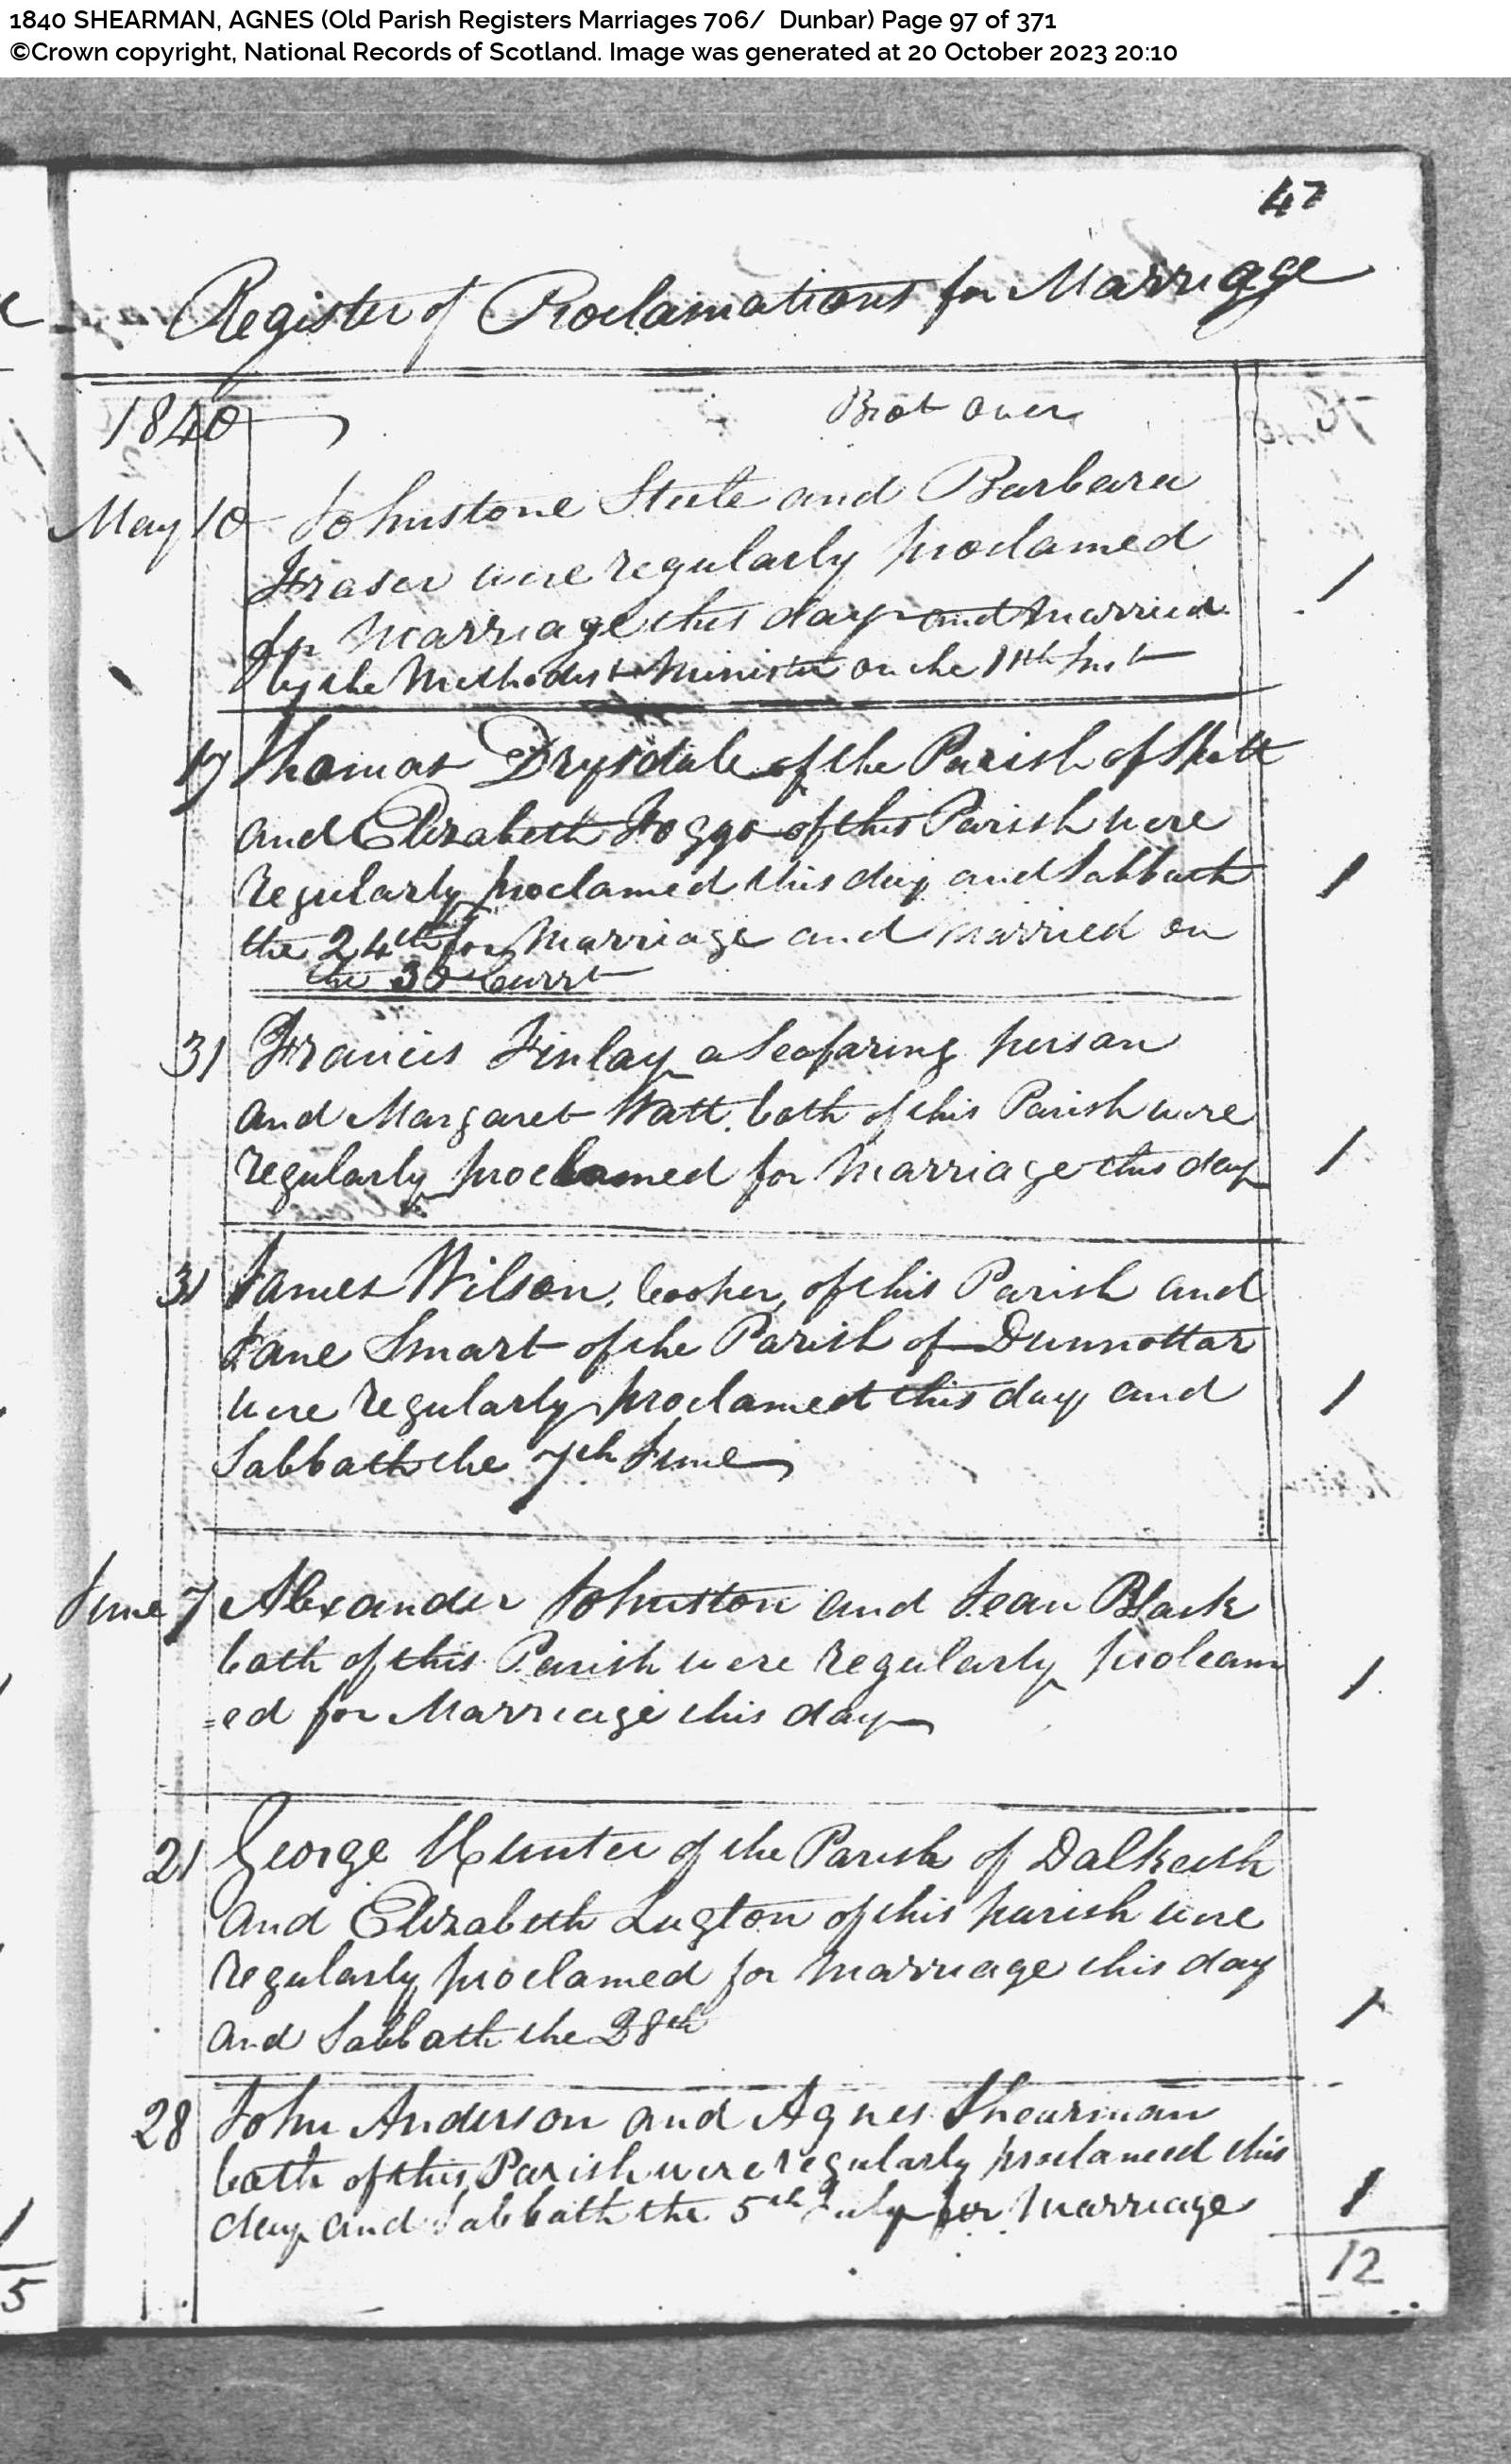 1840 SHEARMAN, AGNES (Old Parish Registers Marriages 706/ Dunbar) Page 97 of 371
©Crown copyright, National Records of Scotland. Image was generated at 20 October 2023 20:10
47
Register of Proclamations for Marriage
1840 Brot over
May 10 Johnstone Steele and Barbara
Fraser were regularly proclamed
for Marriage this day and Married 1
by the Methodist Minister on the 11th Inst
17 Thomas Drysdale of the Parish of Spott
and Elizabeth Foggo of this Parish were
regularly proclamed this day and Sabbath 1
the 24th for Marriage and Married on
the 30 Currt
31 Francis Finlay a Seafaring person
and Margaret Watt both of this Parish were
regularly proclamed for Marriage this day 1
31 James Wilson, Cooper, of this Parish and
Jane Smart of the Parish of Dunnottar
were regularly proclamed this day and 1
Sabbath the 7th June
June 7 Alexander Johnston and Jean Black
both of this Parish were regularly proleam 1
=ed for Marriage this day
21 George Hunter of the Parish of Dalkeith
and Elizabeth Lugton of this parish were
regularly proclamed for Marriage this day
and Sabbath the 28th 1
28 John Anderson and Agnes Shearman
both of this Parish were regularly proclamed this
day and Sabbath the 5th July for Marriage 1
12
1
5